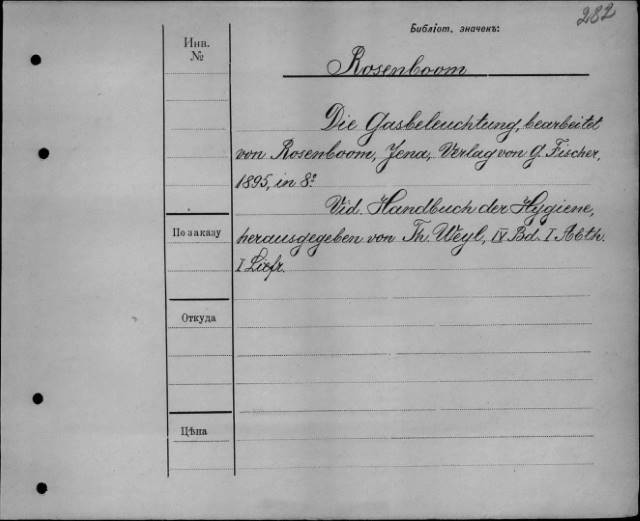 282
Библіот. значекъ:
Инв.
№
Rosenboom
Die Gasbeleuchtung, bearbeitet
von Rosenboom, Jena, Verlag von G. Fischer,
1895, in 8º
Vid. Handbuch der Hygiene,
По заказу
herausgegeben von Th. Weyl, IV Bd. I Abth.
I Liefr.
Откуда
Цѣна